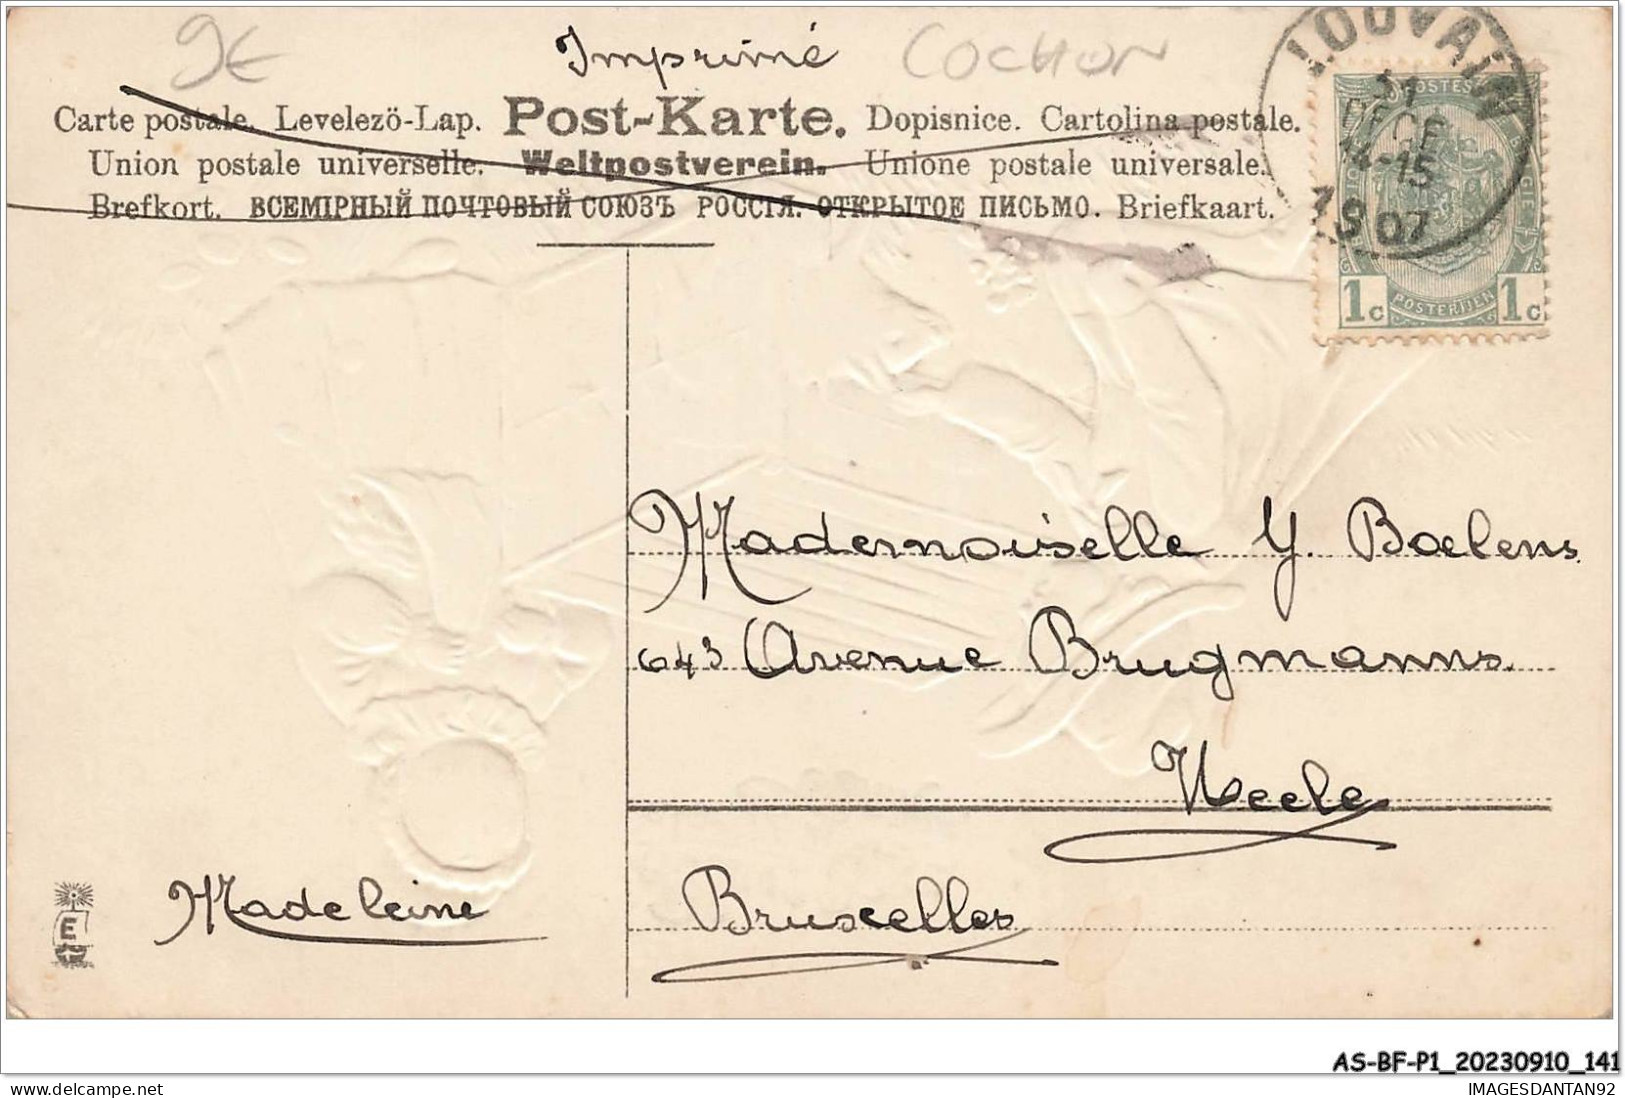 9€
Imprimé
COCHON
LOUVAIN
31
DECE
14-15
1907
POSTES
1c POSTERIJEN 1c
Carte postale. Levelezö-Lap. Post-Karte. Dopisnice. Cartolina postale.
Union postale universelle. Weltpostverein. Unione postale universale.
Brefkort. ВСЕМІРНЫЙ ПОЧТОВЫЙ СОЮЗЪ РОССІЯ. ОТКРЫТОЕ ПИСЬМО. Briefkaart.
Mademoiselle Y. Boelens
643 Avenue Brugmanns.
Uccle
Bruxelles
Madeleine
E
AS-BF-P1_20230910_141
delcampe.net
IMAGESDANTAN92